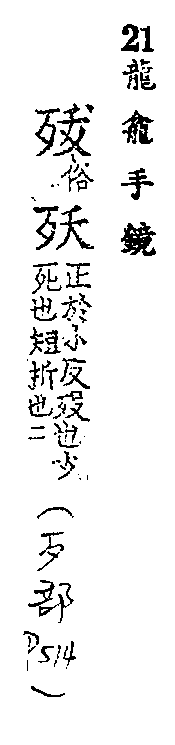 21龍龕手鏡
俗
殀
正於小反歿也少
死也短折也二
(歹部
P514)